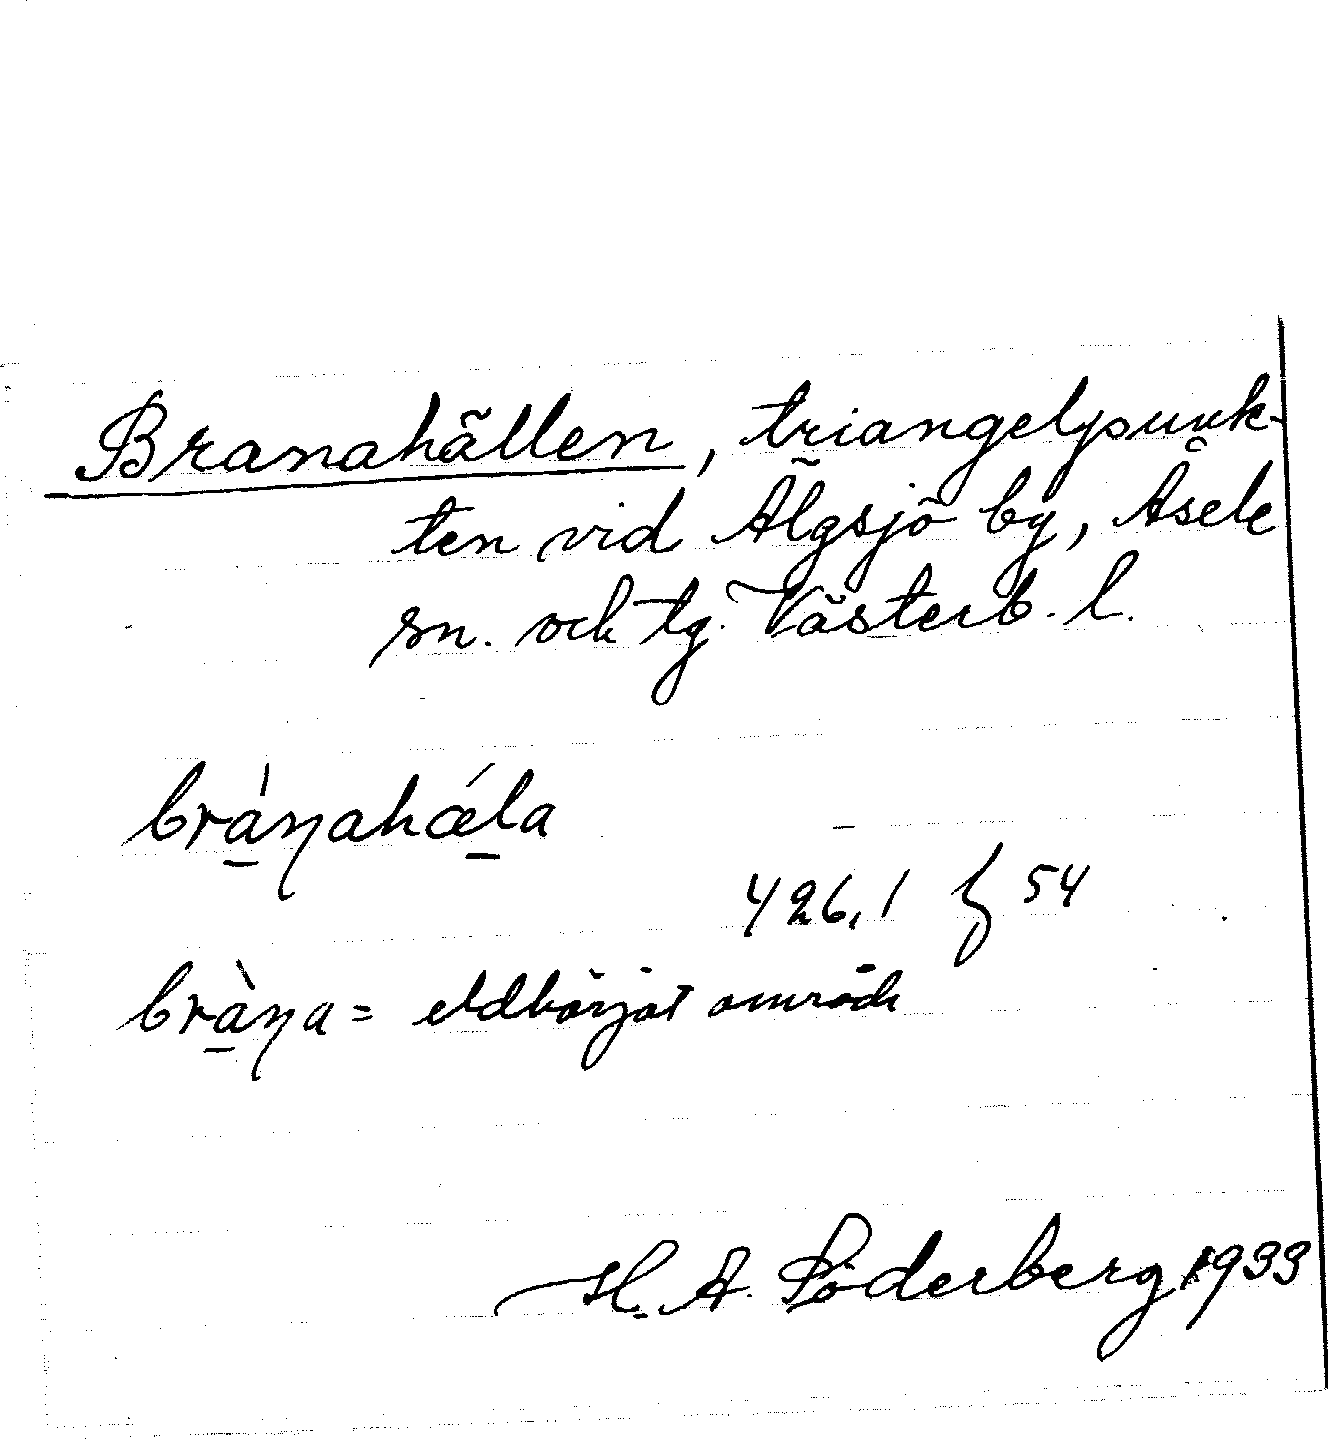 Branahällen, triangelpunk-
ten vid Älgsjö by, Åsele
sn. och tg. Västerb. l.
brànahǽla
426,1 54
bràna = eldhärjat område
H. A. Söderberg 1933